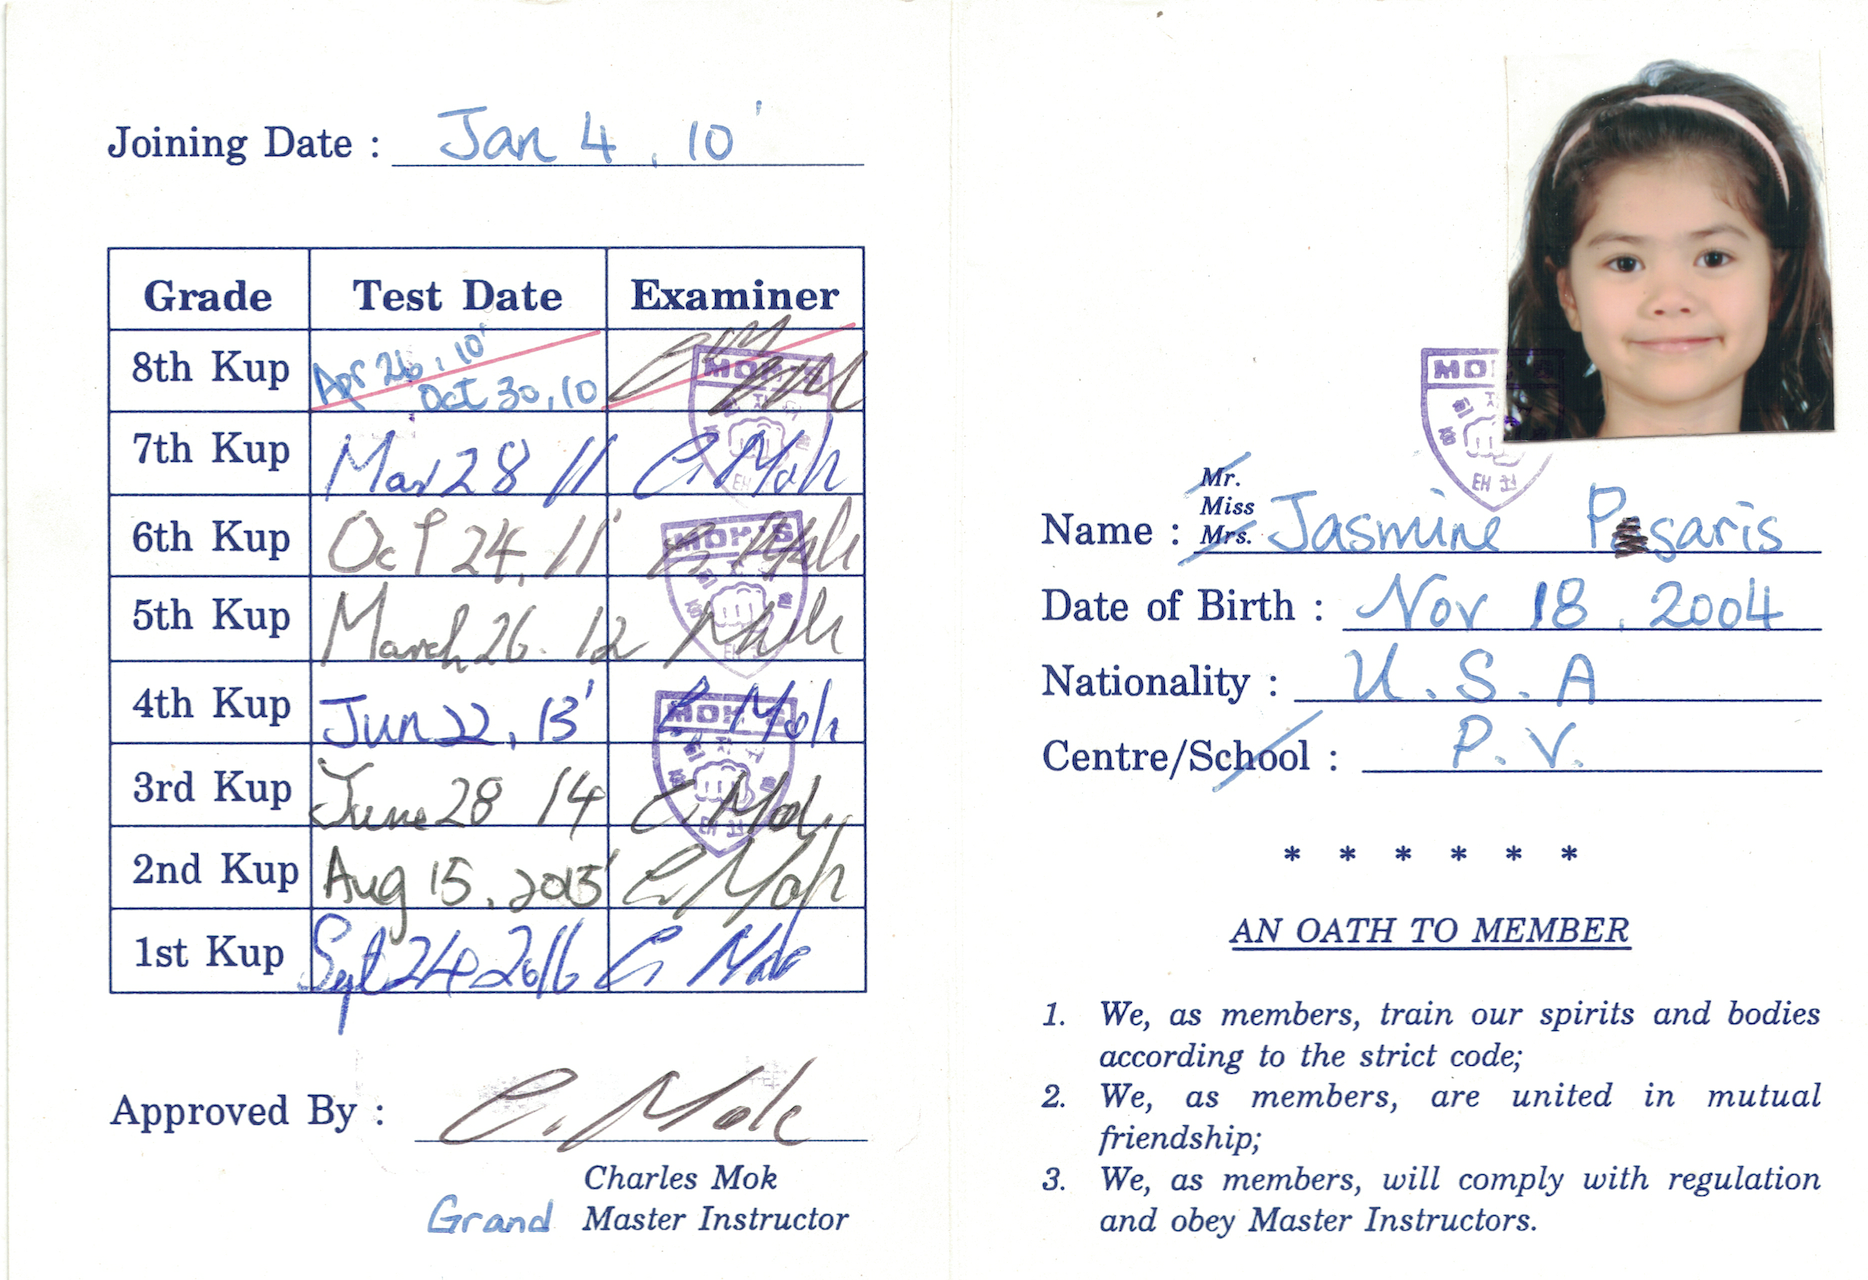 Joining Date : Jan 4, 10'
Grade Test Date Examiner
8th Kup Apr 26, 10' Oct 30, 10
7th Kup Mar 28 11 C. Mok
6th Kup Oct 24, 11' C. Mok
5th Kup March 26. 12 C. Mok
4th Kup Jun 22, 13' C. Mok
3rd Kup June 28 14 C. Mok
2nd Kup Aug 15, 2015' C. Mok
1st Kup Sept 24 2016 C. Mok
Approved By : C. Mok
Charles Mok
Grand Master Instructor
MOK'S
태권
MOK'S
MOK'S
태권
MOK'S
태권
Mr.
Miss
Name : Mrs. Jasmine Pasaris
Date of Birth : Nov 18, 2004
Nationality : U.S.A
Centre/School : P.V.
* * * * * *
AN OATH TO MEMBER
1. We, as members, train our spirits and bodies
according to the strict code;
2. We, as members, are united in mutual
friendship;
3. We, as members, will comply with regulation
and obey Master Instructors.